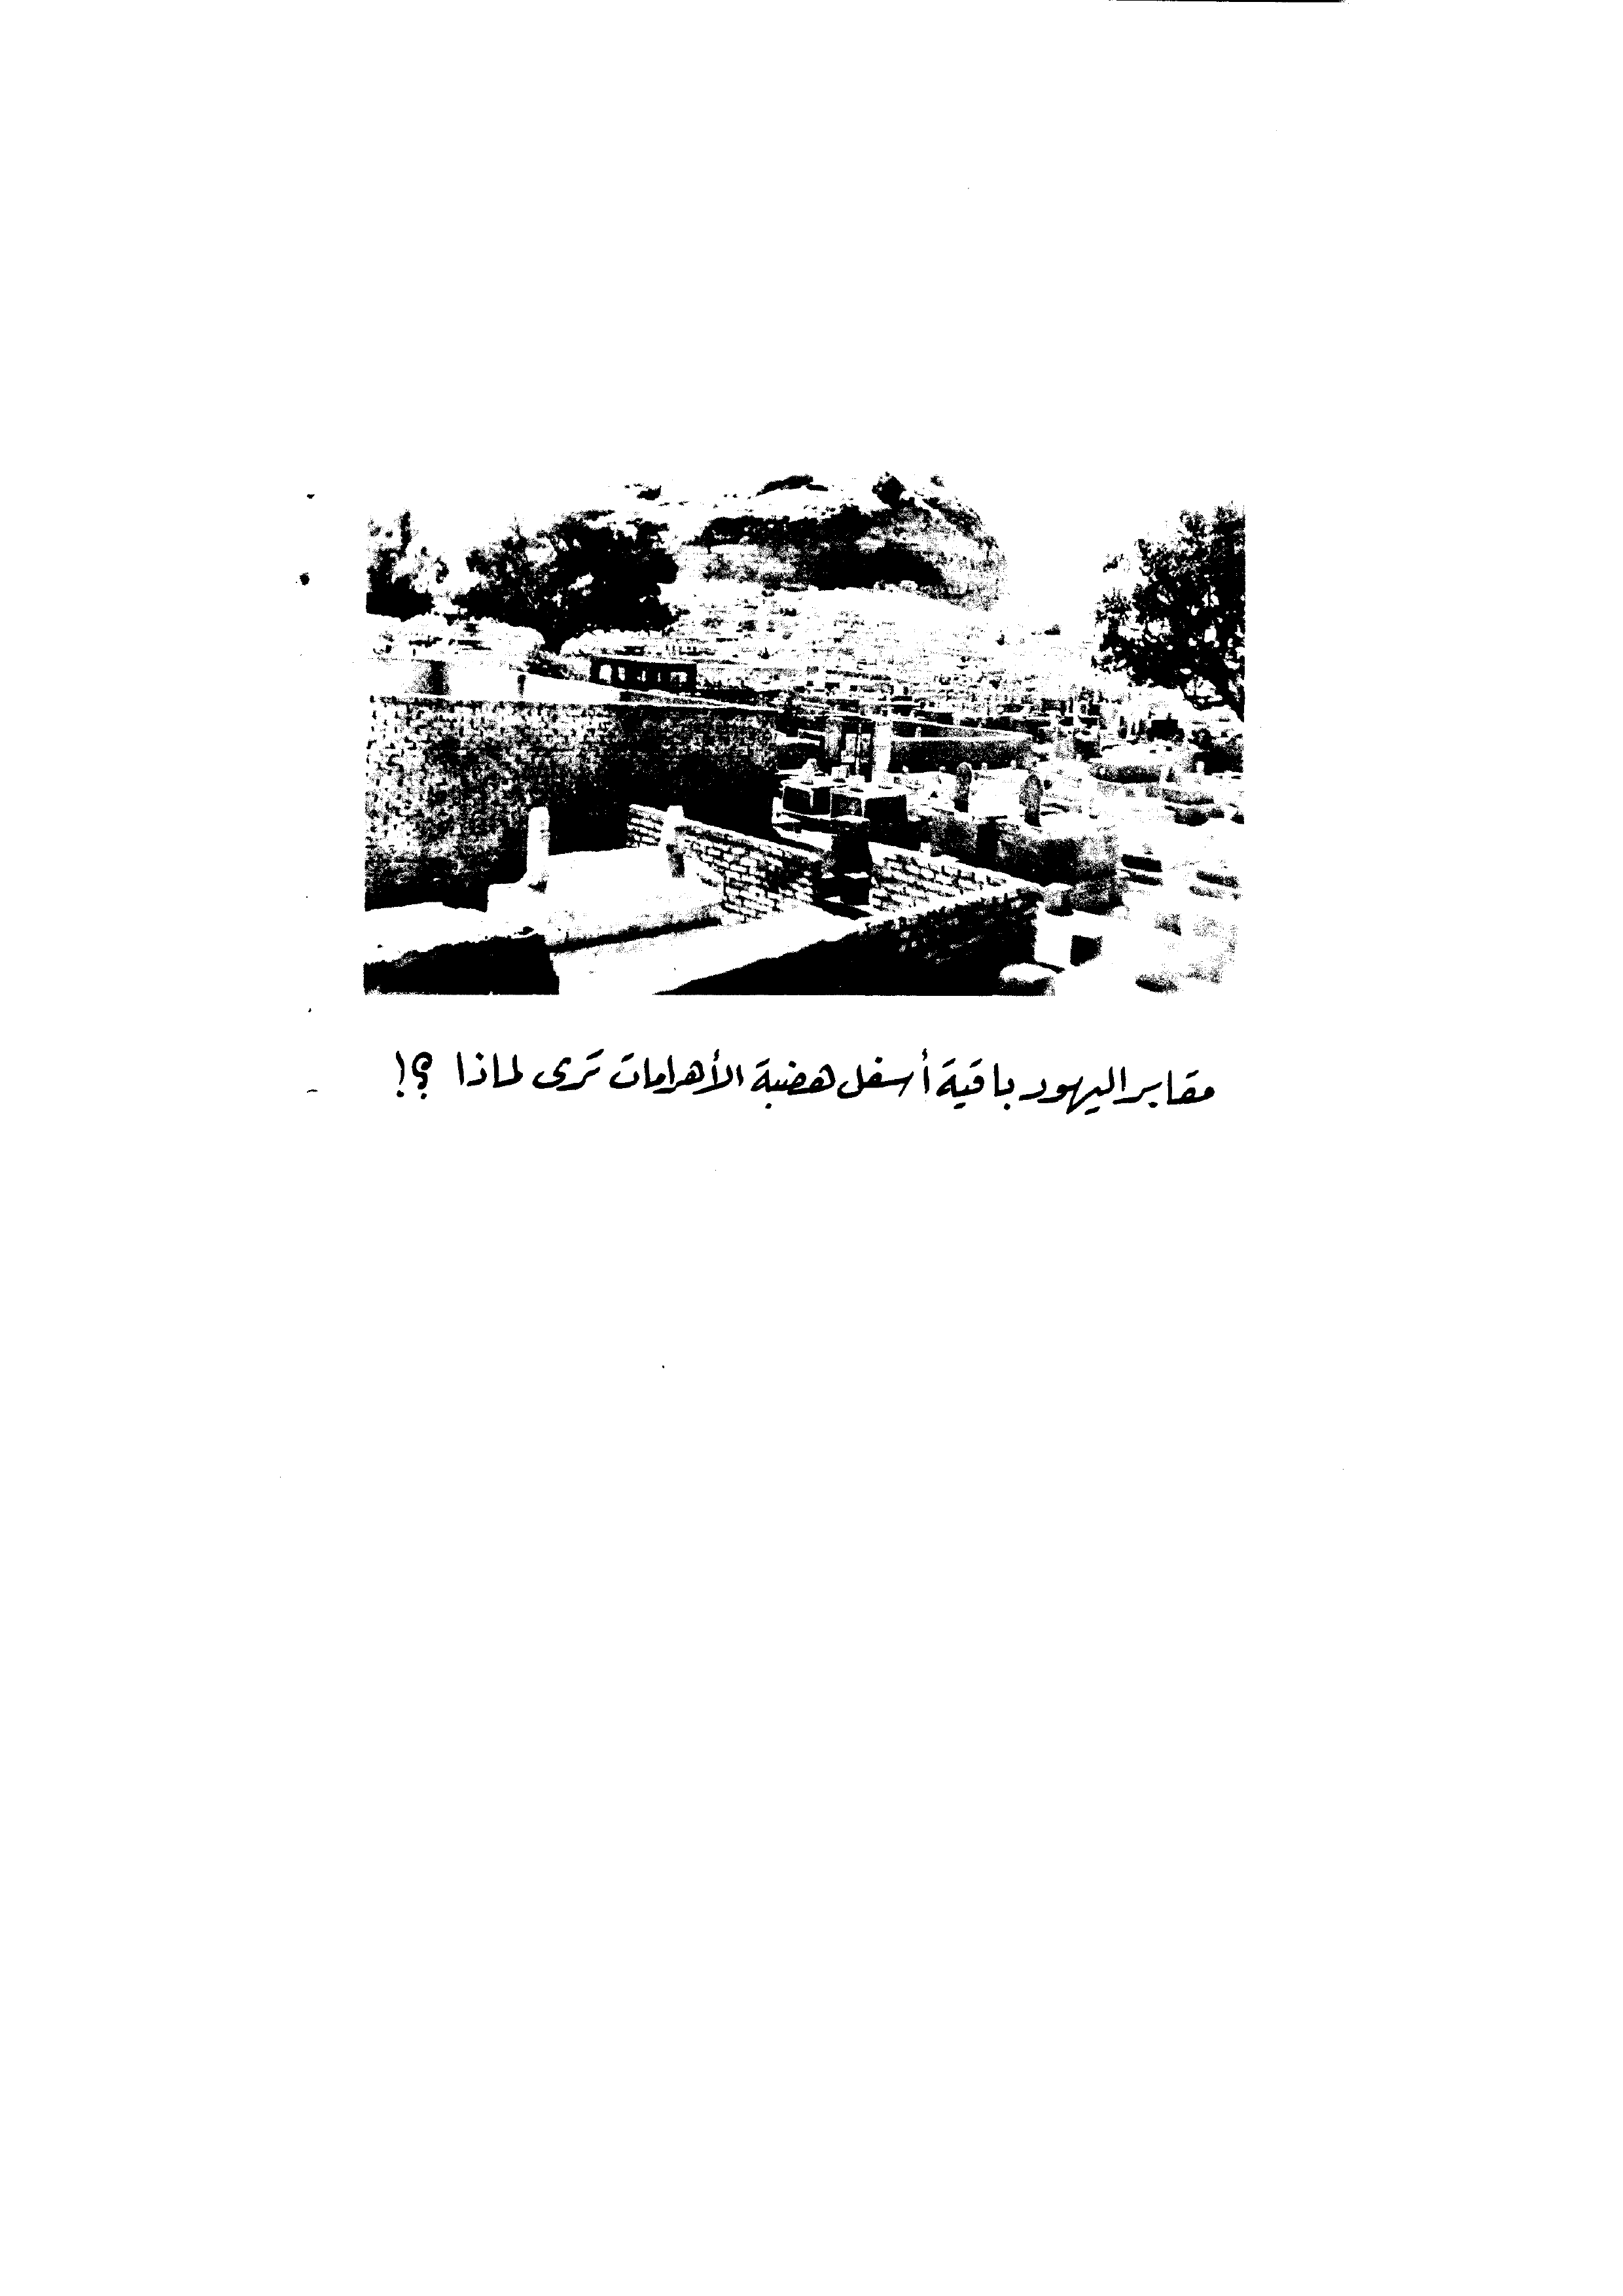 مقابر اليهود باقية أسفل هضبة الأهرامات ترى لماذا ؟!